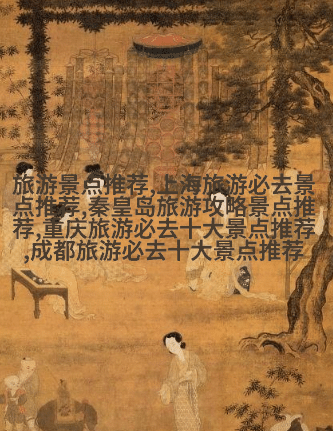 旅游景点推荐,上海旅游必去景
点推荐,秦皇岛旅游攻略景点推
荐,重庆旅游必去十大景点推荐
,成都旅游必去十大景点推荐